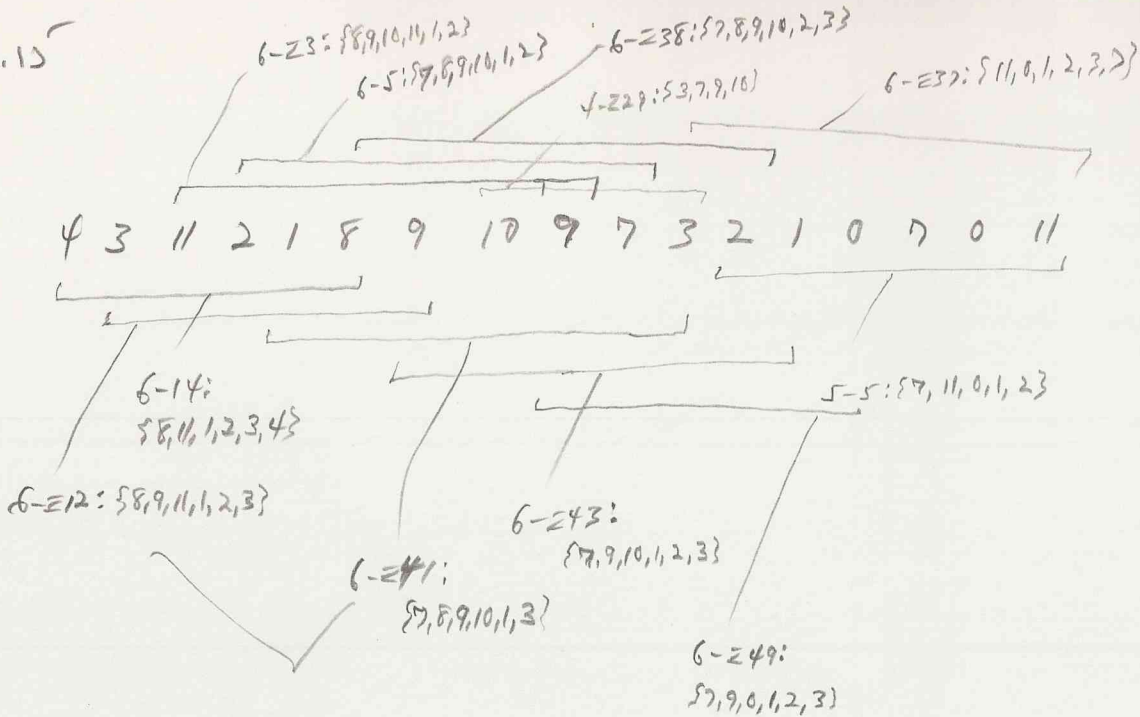 .15
6-Z3: {8,9,10,11,1,2}
6-5: {7,8,9,10,1,2}
6-Z38: {7,8,9,10,2,3}
4-Z29: {3,7,9,10}
6-Z37: {11,0,1,2,3,7}
4 3 11 2 1 8 9 10 9 7 3 2 1 0 7 0 11
6-14:
{8,11,1,2,3,4}
5-5: {7,11,0,1,2}
6-Z12: {8,9,11,1,2,3}
6-Z43:
{7,9,10,1,2,3}
6-Z41:
{7,8,9,10,1,3}
6-Z49:
{7,9,0,1,2,3}